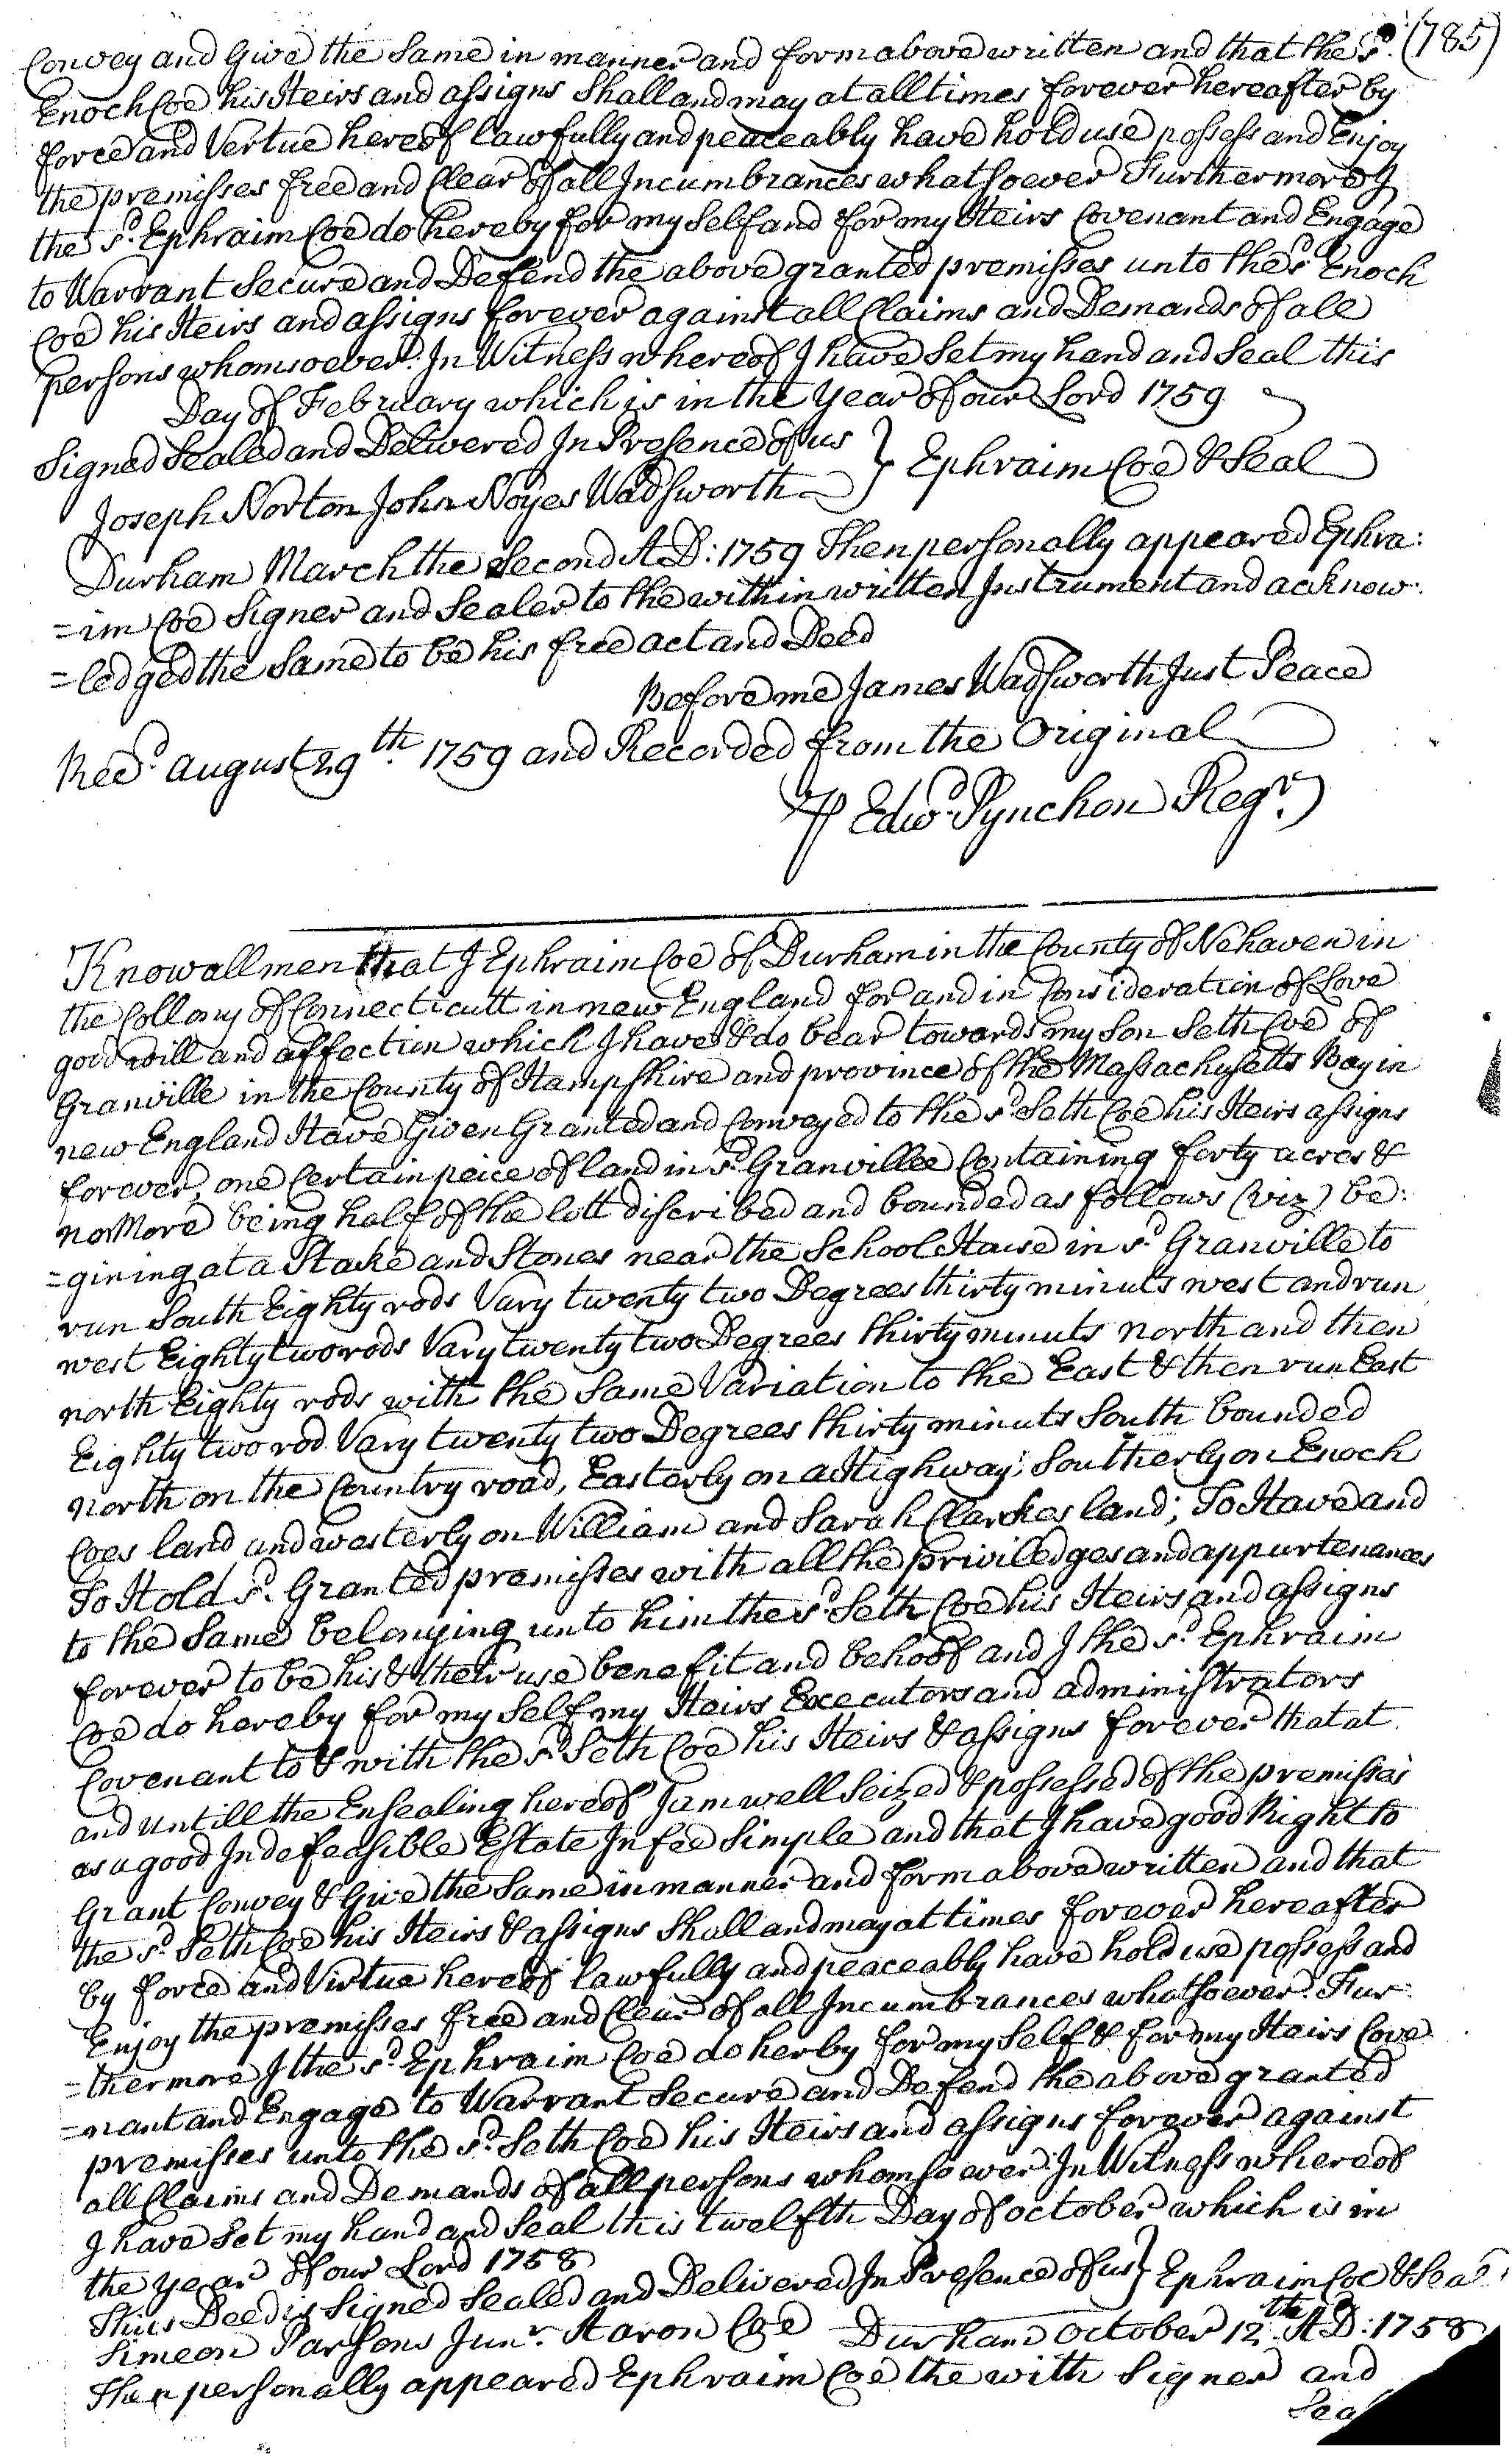 Convey and Give the Same in manner and form above written and that the sd. (785)
Enoch Coe his Heirs and assigns Shall and may at all times forever hereafter by
force and Vertue hereof lawfully and peaceably have hold use possess and Enjoy
the premisses free and Clear of all Incumbrances whatsoever Furthermore I
the sd. Ephraim Coe do hereby for my Self and for my Heirs Covenant and Engage
to Warrant Secure and Defend the above granted premisses unto the sd Enoch
Coe his Heirs and assigns forever against all Claims and Demands of all
persons whomsoever. In Witness whereof I have Set my hand and Seal this
Day of February which is in the Year of our Lord 1759
Signed Sealed and Delivered In Presence of us } Ephraim Coe & Seal
Joseph Norton John Noyes Wadsworth
Durham March the Second AD: 1759 Then personally appeared Ephra:
=im Coe Signer and Sealer to the within written Instrument and acknow:
=ledged the Same to be his free act and Deed
Before me James Wadsworth Just Peace
Recd. august 29th. 1759 and Recorded from the Original
P Edwd. Pynchon Regr.
Know all men that I Ephraim Coe of Durham in the County of Nehaven in
the Collony of Connecticutt in new England for and in Consideration of Love
good will and affection which I have & do bear towards my Son Seth Coe of
Granville in the County of Hampshire and province of the Massachusetts Bay in
new England Have Given Granted and Conveyed to the sd. Seth Coe his Heirs assigns
forever, one Certain peice of land in sd. Granvillee Containing forty acres &
no More being half of the lott discribed and bounded as follows (viz) be:
=gining at a Stake and Stones near the School House in sd. Granville to
run South Eighty rods Vary twenty two Degrees thirty minuts west and run
west Eighty two rods Vary twenty two Degrees thirty minuts north and then
north Eighty rods with the Same Variation to the East & then run East
Eighty two rod Vary twenty two Degrees thirty minuts South bounded
north on the Country road, Easterly on a Highway; Southerly on Enoch
Coes land and westerly on William and Sarah Clarkes land; To Have and
To Hold sd. Granted premisses with all the priviledges and appurtenances
to the Same belonging unto him the sd. Seth Coe his Heirs and assigns
forever to be his & their use benefit and behoof and I the sd. Ephraim
Coe do hereby for my Self my Heirs Executors and administrators
Covenant to & with the sd. Seth Coe his Heirs & assigns forever that at
and untill the Ensealing hereof I am well Seized & possessed of the premisses
as a good Indefeasible Estate In fee Simple and that I have good Right to
Grant Convey & Give the Same in manner and form above written and that
the sd. Seth Coe his Heirs & assigns Shall and may at times forever hereafter
by force and Virtue hereof lawfully and peaceably have hold use possess and
Enjoy the premisses free and Clear of all Incumbrances whatsoever. Fur:
=thermore I the sd. Ephraim Coe do herby for my Self & for my Heirs Cove
=nant and Engage to Warrant Secure and Defend the above granted
premisses unto the sd. Seth Coe his Heirs and assigns forever against
all Claims and Demands of all persons whomsoever. In Witness whereof
I have Set my hand and Seal this twelfth Day of october which is in
the Year of our Lord 1758
This Deed is Signed Sealed and Delivered In Presence of us } Ephraim Coe & Seal
Simeon Parsons Junr. Aaron Coe Durham october 12th. AD: 1758
Then personally appeared Ephraim Coe the with Signer and
Seal